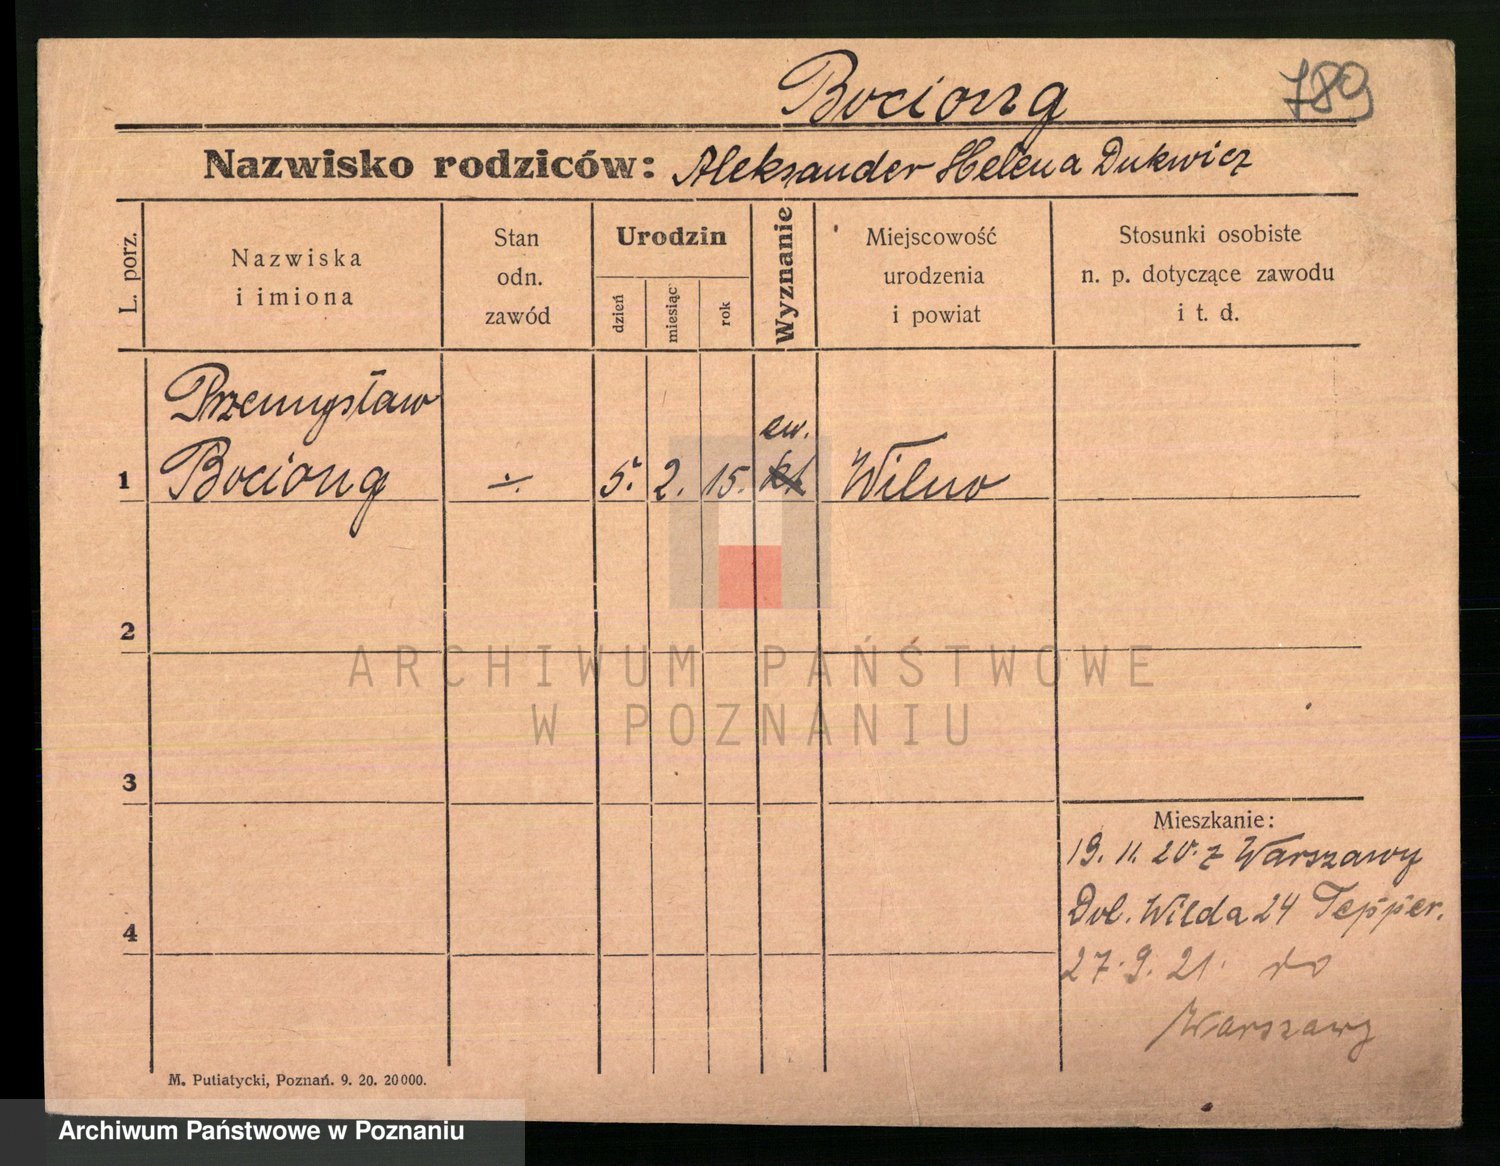 Bociong 789
Nazwisko rodziców: Aleksander Helena Dukwicz
L. porz.
Nazwiska
i imiona
Stan
odn.
zawód
Urodzin
dzień
miesiąc
rok
Wyznanie
Miejscowość
urodzenia
i powiat
Stosunki osobiste
n. p. dotyczące zawodu
i t. d.
Przemysław
ew.
1 Bociong ÷ 5. 2. 15. kt Wilno
2
ARCHIWUM PAŃSTWOWE
W POZNANIU
3
Mieszkanie:
19. 11. 20. z Warszawy
4 Dol. Wilda 24 Tepper.
27. 9. 21. do
Warszawy
M. Putiatycki, Poznań. 9. 20. 20000.
Archiwum Państwowe w Poznaniu